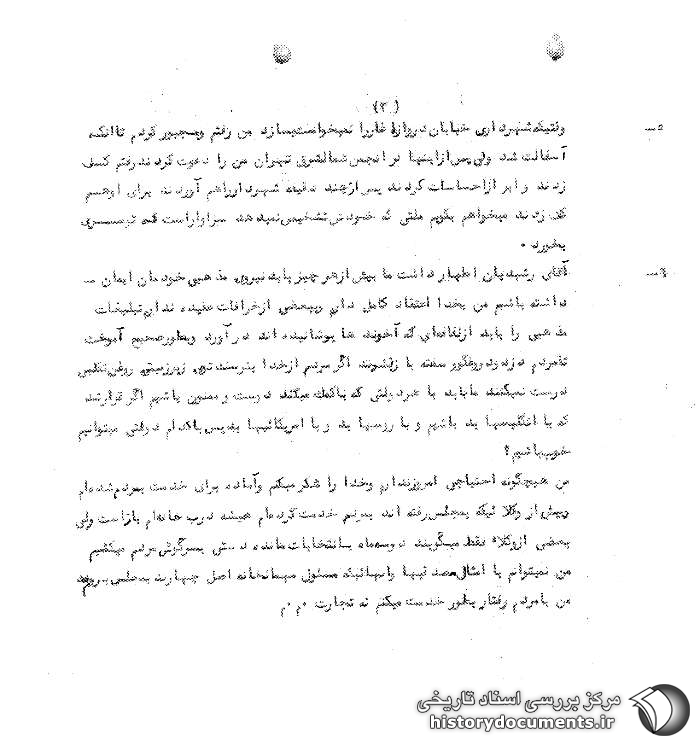 (۲)
۵ــ وقتیکه شهرداری خیابان دروازه غار را نمیخواست بسازد من رفتم ومجبور کردم تا اینکه
آسفالت شد ولی پس از اینها در انجمن شمالشرق تهران من را دعوت کردند رفتم کسف
زدند و ابراز احساسات کردند پس از چند دقیقه شهردار را هم آوردند برای او هم
کف زدند میخواهم بگویم ملتی که خودش تشخیص نمیدهد سزاوار است که توسری
بخورد ۰
۶ــ آقای رشیدیان اظهار داشت ما بیش از هر چیز باید نیروی مذهبی خودمان ایمان ــ
داشته باشیم من بخدا اعتقاد کامل دارم وببعضی از خرافات عقیده ندارم تبلیغات
مذهبی را باید از لفافه‌ای که آخوند ها پوشانیده اند در آورد وبطور صحیح آموخت
تا مردم دزد ودروغگو سفته با ز نشوند اگر مردم از خدا بترسند توی زیرزمینی روغن تقلبی
درست نمیکنند ما باید با هر دولتی که بما کمک میکند درست و ممنون باشیم اگر قرار شد
که با انگلیسها بد باشیم و با روسها بد و با امریکائیها بد پس با کدام دولتی میتوانیم
خوب باشیم ؟
من هیچگونه احتیاجی امروز ندارم وخدا را شکر میکنم وآماده برای خدمت بمردم شده‌ام
وبیش از وکلا ئیکه بمجلس رفته اند بمردم خدمت کرده‌ام همیشه درب خانه‌ام باز است ولی
بعضی از وکلاء فقط میگویند دوسه ماه بانتخابات مانده دستی بسر گوش مردم میکشیم
من نمیتوانم با امثال مصد قیها وآنهائیکه مسئول میهمانخانه اصل چهارند بمجلس بروم
من با مردم رفتار بطور خدمت میکنم نه تجارت ۰م ۰م
مرکز بررسی اسناد تاریخی
historydocuments.ir